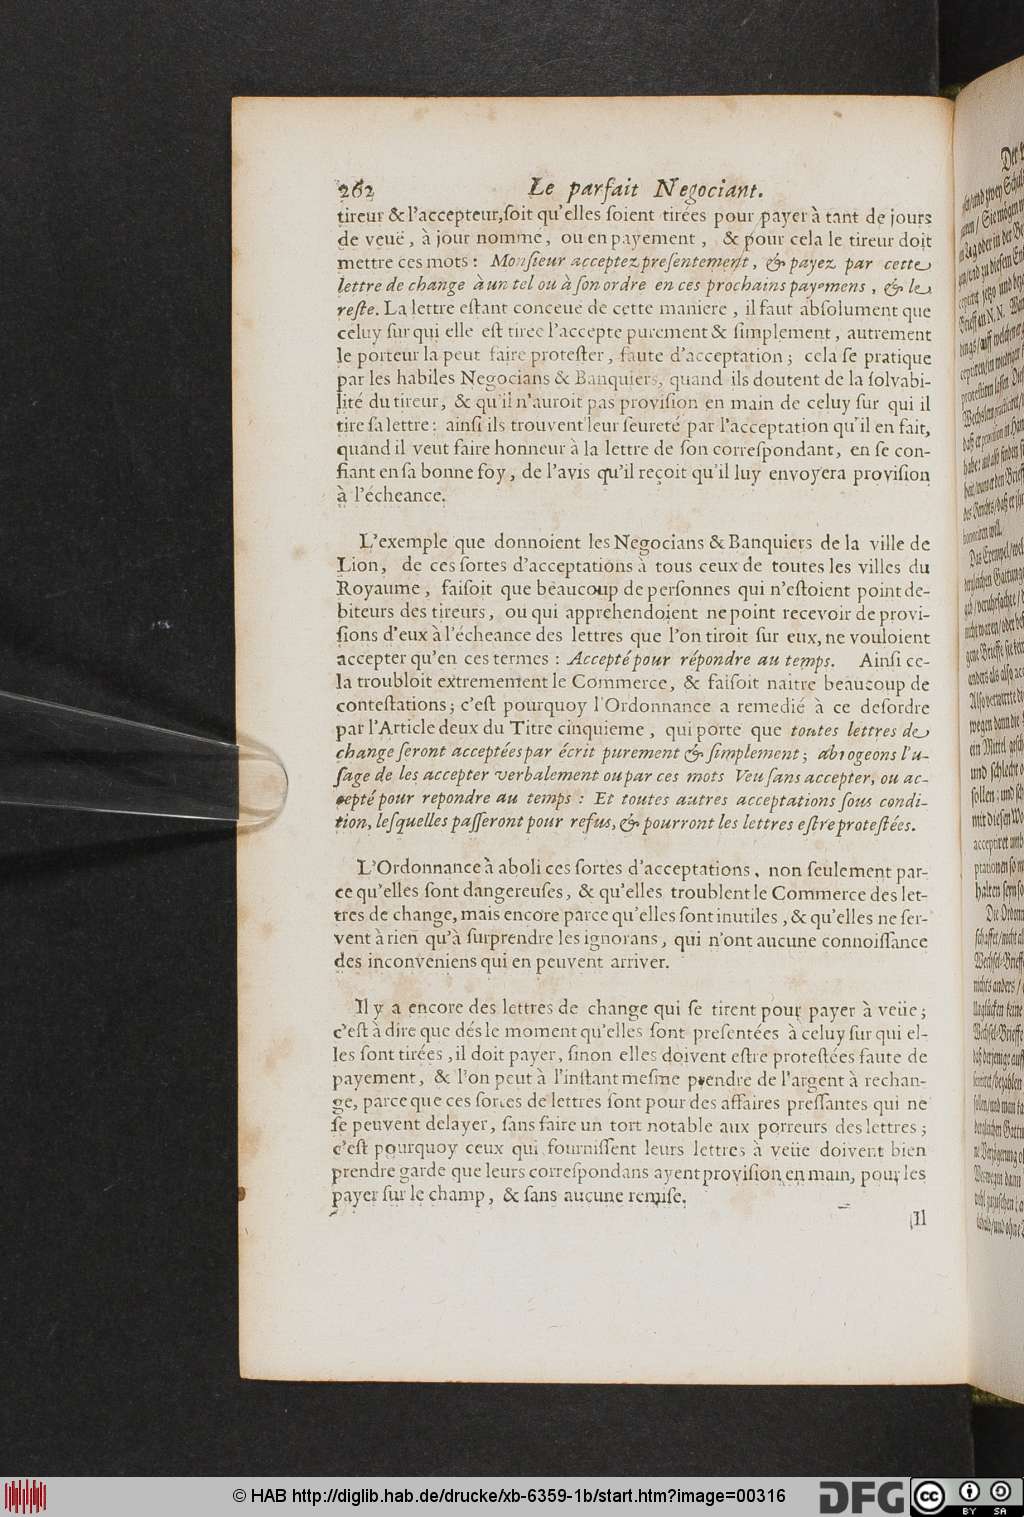 262 Le parfait Negociant.
tireur & l'accepteur, soit qu'elles soient tirées pour payer à tant de jours
de veuë, à jour nommé, ou en payement, & pour cela le tireur doit
mettre ces mots: Monsieur acceptez presentement, & payez par cette
lettre de change à un tel ou à son ordre en ces prochains payemens, & le
reste. La lettre estant conceuë de cette maniere, il faut absolument que
celuy sur qui elle est tirée l'accepte purement & simplement, autrement
le porteur la peut faire protester, faute d'acceptation; cela se pratique
par les habiles Negocians & Banquiers, quand ils doutent de la solvabi-
lité du tireur, & qu'il n'auroit pas provision en main de celuy sur qui il
tire sa lettre: ainsi ils trouvent leur seureté par l'acceptation qu'il en fait,
quand il veut faire honneur à la lettre de son correspondant, en se con-
fiant en sa bonne foy, de l'avis qu'il reçoit qu'il luy envoyera provision
à l'écheance.
L'exemple que donnoient les Negocians & Banquiers de la ville de
Lion, de ces sortes d'acceptations à tous ceux de toutes les villes du
Royaume, faisoit que beaucoup de personnes qui n'estoient point de-
biteurs des tireurs, ou qui apprehendoient ne point recevoir de provi-
sions d'eux à l'écheance des lettres que l'on tiroit sur eux, ne vouloient
accepter qu'en ces termes: Accepté pour répondre au temps. Ainsi ce-
la troubloit extremement le Commerce, & faisoit naitre beaucoup de
contestations; c'est pourquoy l'Ordonnance a remedié à ce desordre
par l'Article deux du Titre cinquieme, qui porte que toutes lettres de
change seront acceptées par écrit purement & simplement; abrogeons l'u-
sage de les accepter verbalement ou par ces mots Veu sans accepter, ou ac-
cepté pour repondre au temps: Et toutes autres acceptations sous condi-
tion, lesquelles passeront pour refus, & pourront les lettres estre protestées.
L'Ordonnance à aboli ces sortes d'acceptations, non seulement par-
ce qu'elles sont dangereuses, & qu'elles troublent le Commerce des let-
tres de change, mais encore parce qu'elles sont inutiles, & qu'elles ne ser-
vent à rien qu'à surprendre les ignorans, qui n'ont aucune connoissance
des inconveniens qui en peuvent arriver.
Il y a encore des lettres de change qui se tirent pour payer à veüe;
c'est à dire que dés le moment qu'elles sont presentées à celuy sur qui el-
les sont tirées, il doit payer, sinon elles doivent estre protestées faute de
payement, & l'on peut à l'instant mesme prendre de l'argent à rechan-
ge, parce que ces sortes de lettres sont pour des affaires pressantes qui ne
se peuvent delayer, sans faire un tort notable aux porreurs des lettres;
c'est pourquoy ceux qui fournissent leurs lettres à veüe doivent bien
prendre garde que leurs correspondans ayent provision en main, pour les
payer sur le champ, & sans aucune remise.
Il
© HAB http://diglib.hab.de/drucke/xb-6359-1b/start.htm?image=00316
DFG
cc BY SA